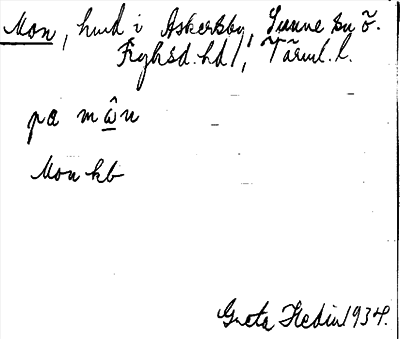 Mon, hmd i Askersby, Sunne sn ö.
Fryksd. hd, Värml. l.
pa mâ̱n
Mon kb
Greta Hedin 1934.